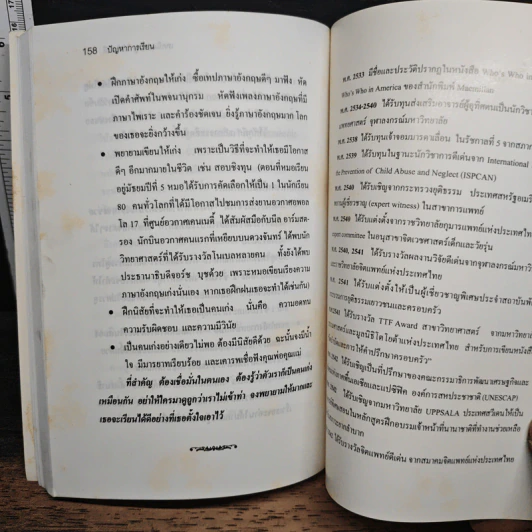 158 ปัญหาการเรียน
• ฝึกภาษาอังกฤษให้เก่ง ซื้อเทปภาษาอังกฤษดีๆ มาฟัง หัด
เปิดคำศัพท์ในพจนานุกรม หัดฟังเพลงภาษาอังกฤษที่มี
ภาษาไพเราะ และคำร้องชัดเจน ยิ่งรู้ภาษาอังกฤษมาก โลก
ของเธอจะยิ่งกว้างขึ้น
• พยายามเขียนให้เก่ง เพราะเป็นวิธีที่จะทำให้เธอมีโอกาส
ดีๆ อีกมากมายในชีวิต เช่น สอบชิงทุน (ตอนที่หมอเรียน
อยู่มัธยมปีที่ 5 หมอได้รับการคัดเลือกให้เป็น 1 ในนักเรียน
80 คนทั่วโลกที่ได้มีโอกาสไปชมการส่งยานอวกาศอพอล
โล 17 ที่ศูนย์อวกาศเคนเนดี้ ได้สัมผัสมือกับนีล อาร์มสต-
รอง นักบินอวกาศคนแรกที่เหยียบบนดวงจันทร์ ได้พบนัก
วิทยาศาสตร์ที่ได้รับรางวัลโนเบลหลายคน ทั้งยังได้พบ
ประธานาธิบดีจอร์ช บุชด้วย เพราะหมอเขียนเรียงความ
ภาษาอังกฤษเก่งนั่นเอง หากเธอฝึกฝนเธอจะทำได้เช่นกัน)
• ฝึกนิสัยที่จะทำให้เธอเป็นคนเก่ง นั่นคือ ความอดทน
ความรับผิดชอบ และความมีวินัย
• เป็นคนเก่งอย่างเดียวไม่พอ ต้องมีนิสัยดีด้วย ฉะนั้นจงมีน้ำ
ใจ มีมารยาทเรียบร้อย และเคารพเชื่อฟังคุณพ่อคุณแม่
ที่สำคัญ ต้องเชื่อมั่นในตนเอง ต้องรู้ว่าตัวเราก็เป็นคนเก่ง
เหมือนกัน อย่าให้ใครมาดูถูกว่าเราไม่เข้าท่า จงพยายามให้มากและ
เธอจะเรียนได้ดีอย่างที่เธอตั้งใจเอาไว้
พ.ศ. 2533 มีชื่อและประวัติปรากฏในหนังสือ Who's Who in
Who's Who in America ของสำนักพิมพ์ Macmillan
พ.ศ. 2534-2540 ได้รับทุนส่งเสริมอาจารย์ผู้อุทิศตนเป็นนักวิชา
แพทยศาสตร์ จุฬาลงกรณ์มหาวิทยาลัย
2538 ได้รับทุนเจ้าจอมมารดาเลื่อน ในรัชกาลที่ 5 จากสภาก
2539 ได้รับทุนในฐานะนักวิชาการดีเด่นจาก International
Prevention of Child Abuse and Neglect (ISPCAN)
2540 ได้รับเชิญจากกระทรวงยุติธรรม ประเทศสหรัฐอเมริ
(expert witness) ในสาขาการแพทย์
2540 ได้รับแต่งตั้งจากราชวิทยาลัยกุมารแพทย์แห่งประเทศไทย
expert committee ในอนุสาขาจิตเวชศาสตร์เด็กและวัยรุ่น
2540, 2541 ได้รับรางวัลผลงานวิจัยดีเด่นจากจุฬาลงกรณ์มหาวิ
ราชวิทยาลัยจิตแพทย์แห่งประเทศไทย
2541 ได้รับแต่งตั้งให้เป็นผู้เชี่ยวชาญพิเศษประจำสถาบันพั
ยุติธรรมเยาวชนและครอบครัว
ได้รับรางวัล TTF Award สาขาวิทยาศาสตร์ จากมหาวิทยาลั
และมูลนิธิโตโยต้าแห่งประเทศไทย สำหรับการเขียนหนังสื
และการให้คำปรึกษาครอบครัว"
ได้รับเชิญเป็นที่ปรึกษาของคณะกรรมาธิการพัฒนาเศรษฐกิจและ
เอเชียและแปซิฟิค องค์การสหประชาชาติ (UNESCAP)
ได้รับเชิญจากมหาวิทยาลัย UPPSALA ประเทศสวีเดนให้เป็น
สอนในหลักสูตรฝึกอบรมเจ้าหน้าที่นานาชาติที่ทำงานช่วยเหลือ
ได้รับรางวัลจิตแพทย์ดีเด่น จากสมาคมจิตแพทย์แห่งประเทศไทย